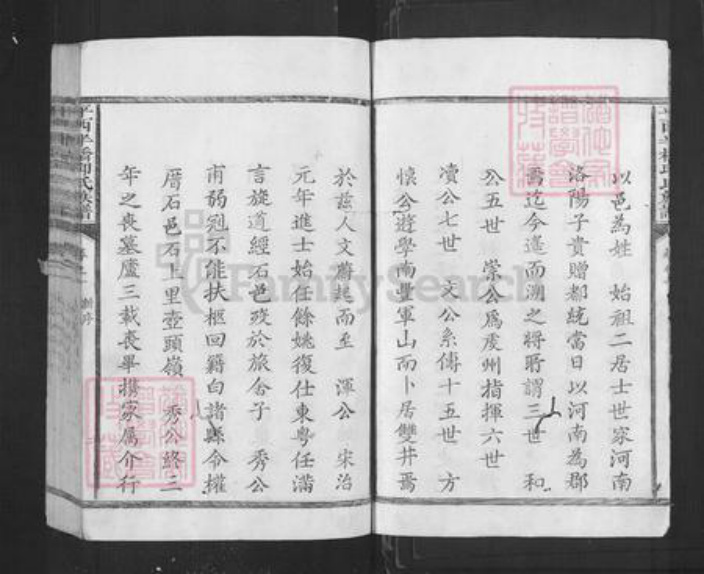 以邑為姓 始祖二居士世家河南
洛陽子貴贈都統當日以河南為郡
焉迄今遙而溯之將所謂三世 和
公五世 崇公為虔州指揮六世
瀆公七世 文公系傳十五世 方
懷公遊學南豐軍山而卜居雙井焉
於茲人文蔚起而至 渾公 宋治
元年進士始任餘姚復仕東粵任滿
言旋道經石邑歿於旅舍子 秀公
甫弱冠不能扶柩回籍白諸縣令權
厝石邑石上里壺頭嶺 秀公終三
年之喪墓廬三載喪畢携家属介行
氏族譜
FamilySearch